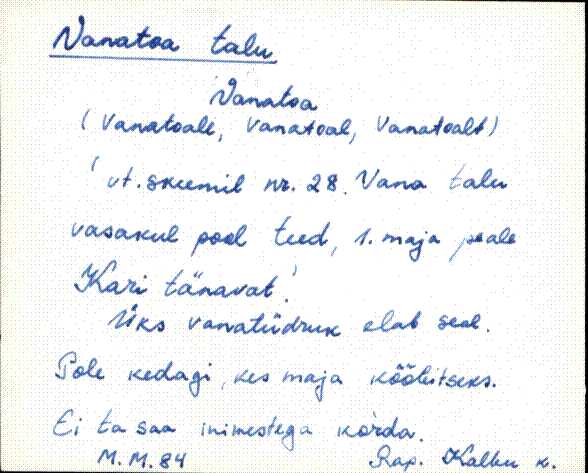 Vanatoa talu
Vanatoa
(Vanatoale, Vanatoal, Vanatoalt)
vt. skeemil nr. 28. Vana talu
vasakul pool teed, 1. maja peale
Kari tänavat.
Üks vanatüdruk elab seal.
Pole kedagi, kes maja kõõbitseks.
Ei ta saa inimestega korda.
M.M. 84 Rap. Kalbu k.